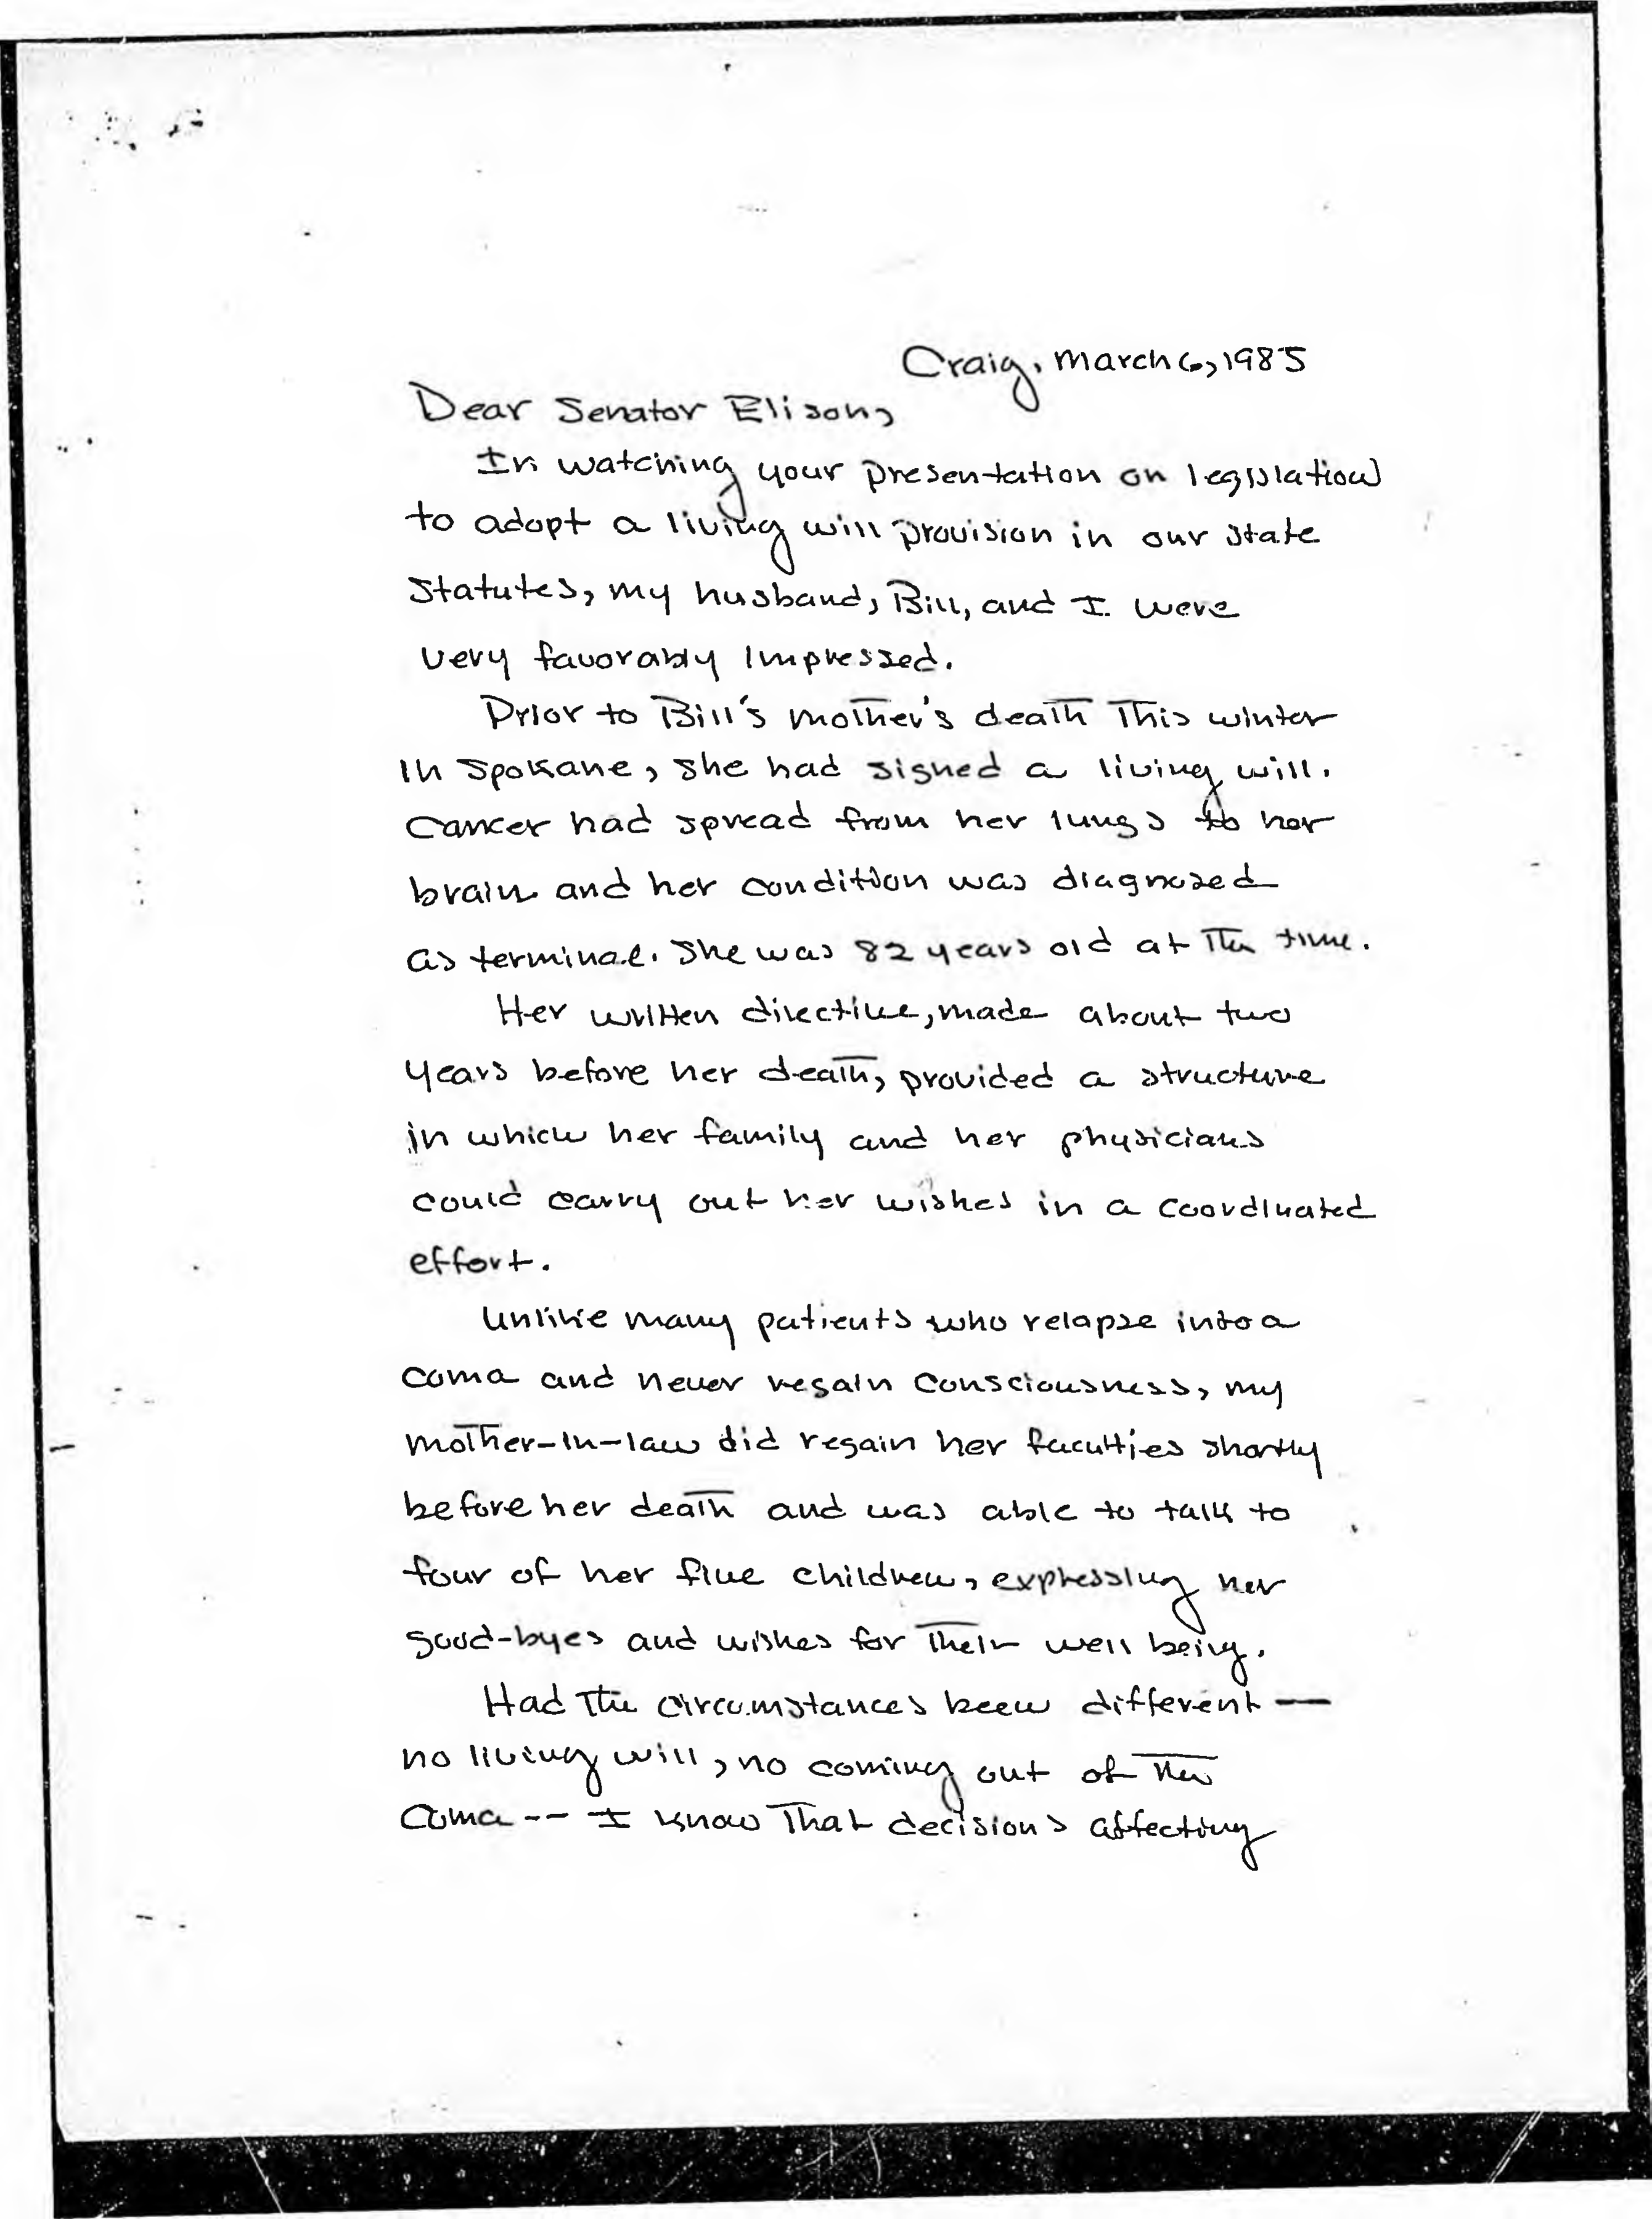 Craig, March 6, 1985
Dear Senator Elison,
In watching your presentation on legislation
to adopt a living will provision in our state
statutes, my husband, Bill, and I were
very favorably impressed.
Prior to Bill's mother's death this winter
in Spokane, she had signed a living will.
Cancer had spread from her lungs to her
brain and her condition was diagnosed
as terminal. She was 82 years old at the time.
Her written directive, made about two
years before her death, provided a structure
in which her family and her physicians
could carry out her wishes in a coordinated
effort.
Unlike many patients who relapse into a
coma and never regain consciousness, my
mother-in-law did regain her faculties shortly
before her death and was able to talk to
four of her five children, expressing her
good-byes and wishes for their well being.
Had the circumstances been different —
no living will, no coming out of the
coma -- I know that decisions affecting